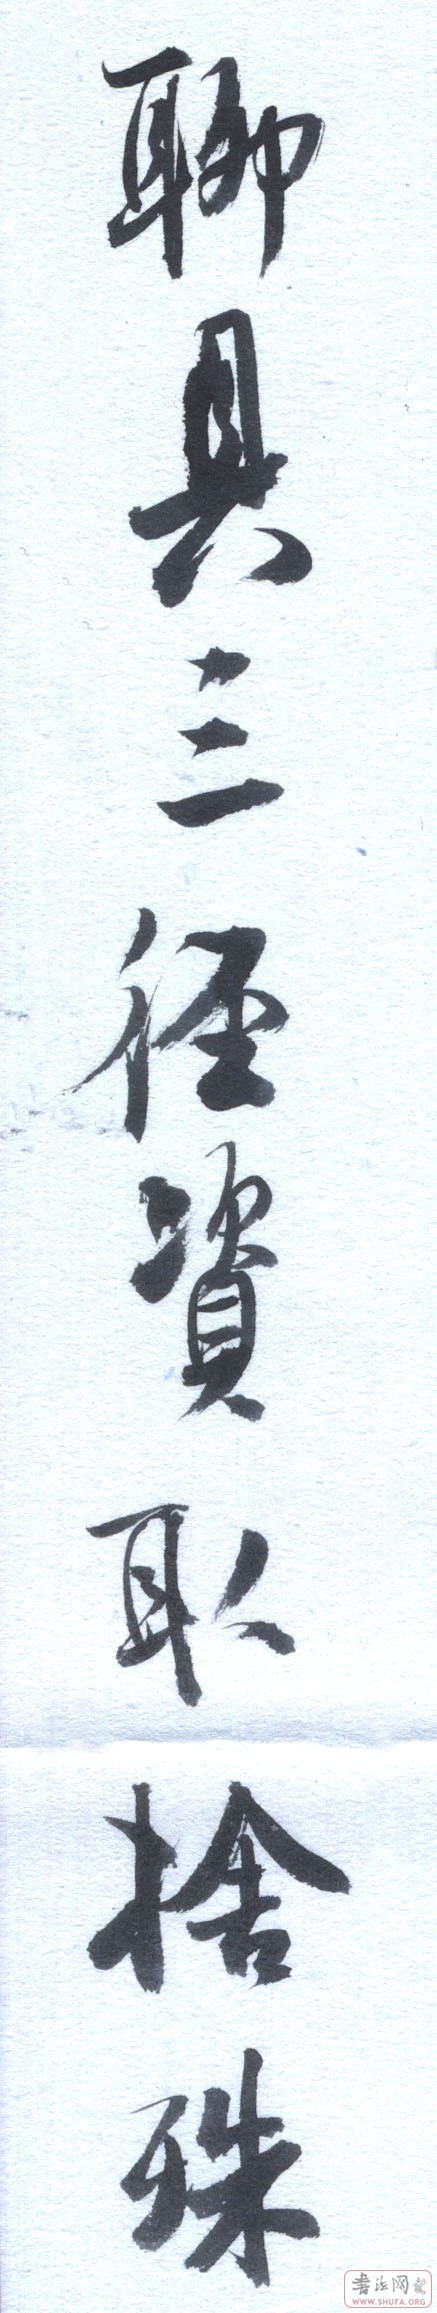 聊具三径資取捨殊
書法网
WWW.SHUFA.ORG